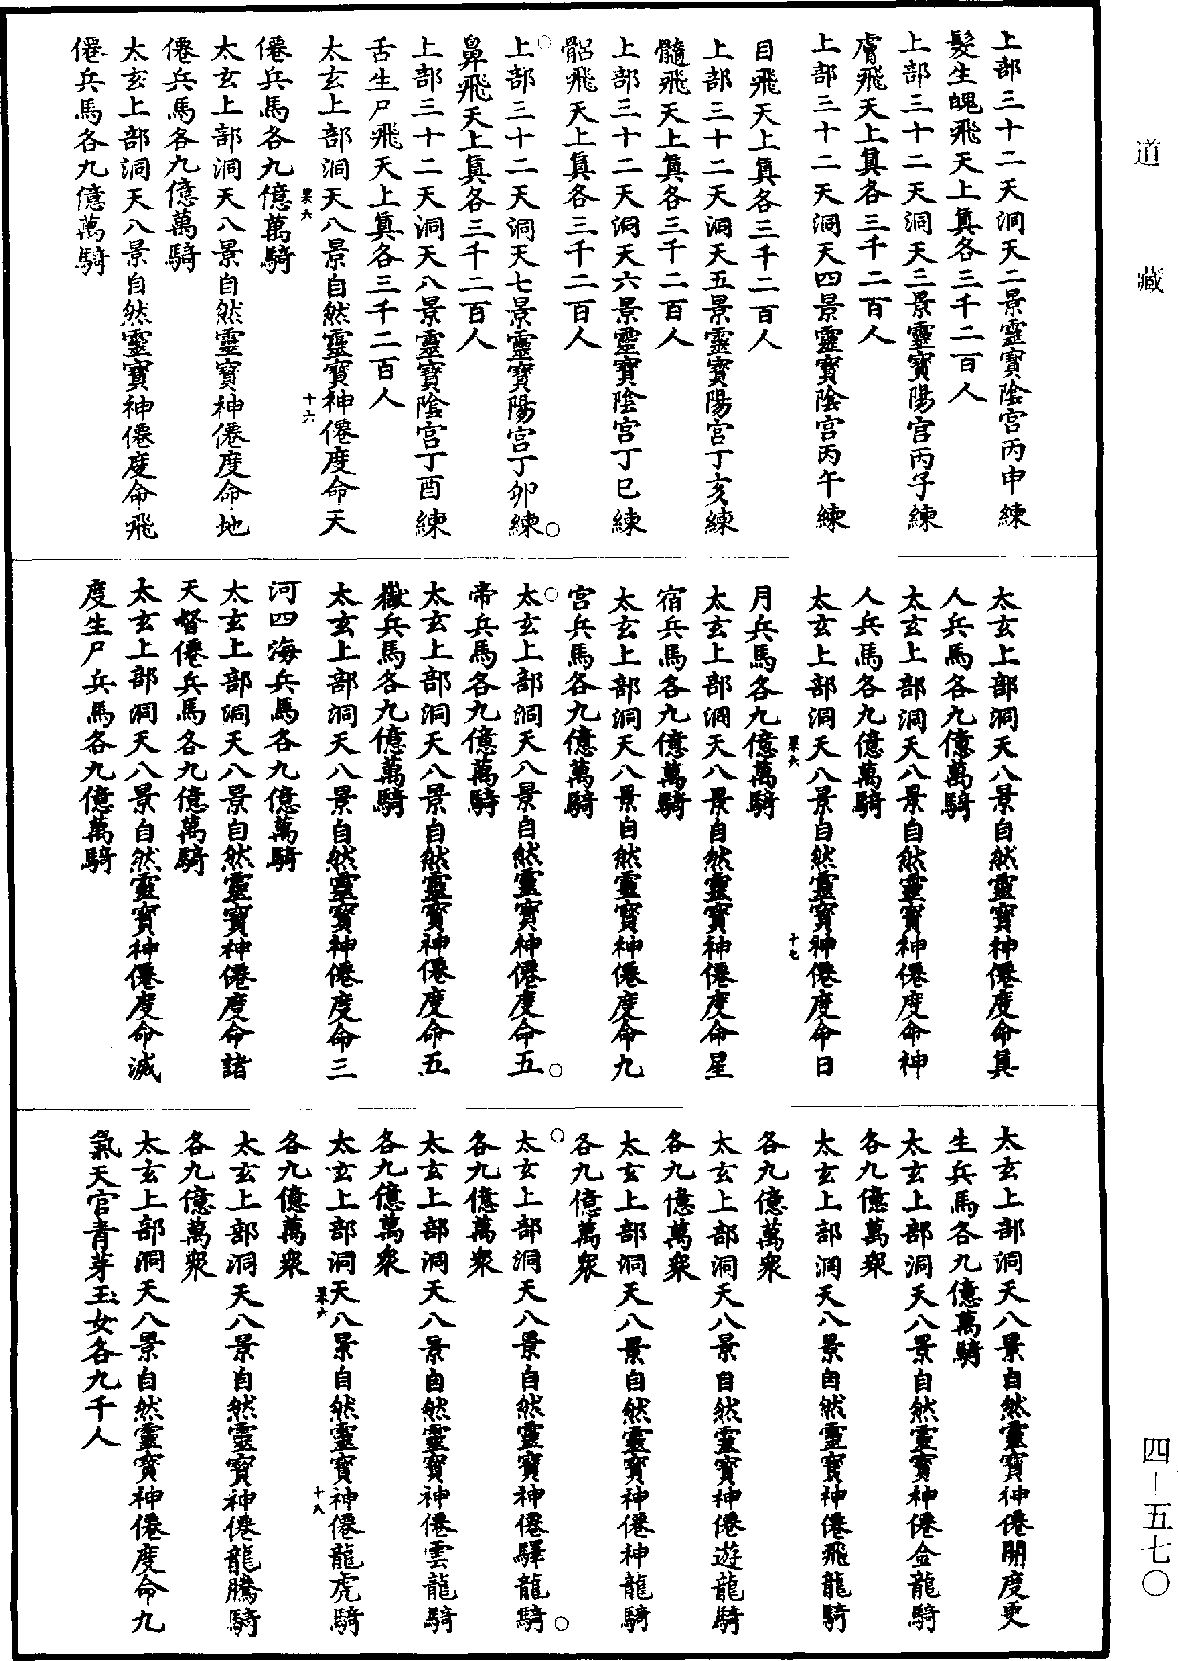 道藏
四—五七〇
上部三十二天洞天二景靈寶陰宮丙申練
髮生魄飛天上真各三千二百人
上部三十二天洞天三景靈寶陽宮丙子練
膚飛天上真各三千二百人
上部三十二天洞天四景靈寶陰宮丙午練
目飛天上真各三千二百人
上部三十二天洞天五景靈寶陽宮丁亥練
髓飛天上真各三千二百人
上部三十二天洞天六景靈寶陰宮丁巳練
䯏飛天上真各三千二百人
上部三十二天洞天七景靈寶陽宮丁卯練
鼻飛天上真各三千二百人
上部三十二天洞天八景靈寶陰宮丁酉練
舌生尸飛天上真各三千二百人
太玄上部洞天八景自然靈寶神僊度命天
僊兵馬各九億萬騎
太玄上部洞天八景自然靈寶神僊度命地
僊兵馬各九億萬騎
太玄上部洞天八景自然靈寶神僊度命飛
僊兵馬各九億萬騎
十六
太玄上部洞天八景自然靈寶神僊度命真
人兵馬各九億萬騎
太玄上部洞天八景自然靈寶神僊度命神
人兵馬各九億萬騎
太玄上部洞天八景自然靈寶神僊度命日
月兵馬各九億萬騎
太玄上部洞天八景自然靈寶神僊度命星
宿兵馬各九億萬騎
太玄上部洞天八景自然靈寶神僊度命九
宮兵馬各九億萬騎
太玄上部洞天八景自然靈寶神僊度命五
帝兵馬各九億萬騎
太玄上部洞天八景自然靈寶神僊度命五
嶽兵馬各九億萬騎
太玄上部洞天八景自然靈寶神僊度命三
河四海兵馬各九億萬騎
太玄上部洞天八景自然靈寶神僊度命諸
天督僊兵馬各九億萬騎
太玄上部洞天八景自然靈寶神僊度命滅
度生尸兵馬各九億萬騎
十七
太玄上部洞天八景自然靈寶神僊開度更
生兵馬各九億萬騎
太玄上部洞天八景自然靈寶神僊金龍騎
各九億萬眾
太玄上部洞天八景自然靈寶神僊飛龍騎
各九億萬眾
太玄上部洞天八景自然靈寶神僊遊龍騎
各九億萬眾
太玄上部洞天八景自然靈寶神僊神龍騎
各九億萬眾
太玄上部洞天八景自然靈寶神僊驛龍騎
各九億萬眾
太玄上部洞天八景自然靈寶神僊雲龍騎
各九億萬眾
太玄上部洞天八景自然靈寶神僊龍虎騎
各九億萬眾
太玄上部洞天八景自然靈寶神僊龍騰騎
各九億萬眾
太玄上部洞天八景自然靈寶神僊度命九
氣天官青芽玉女各九千人
十八